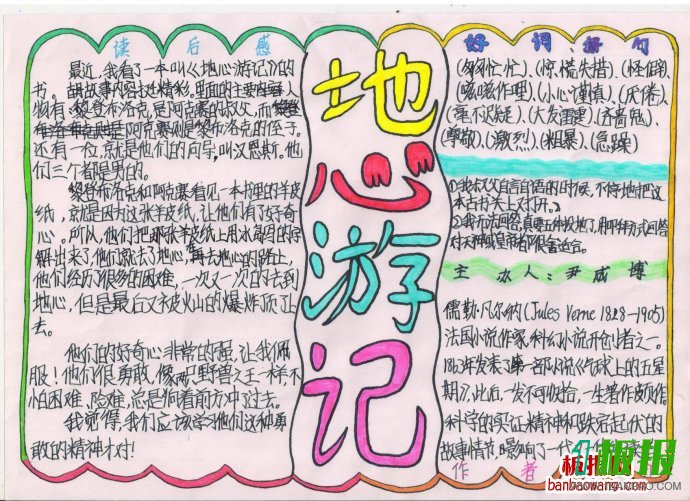 读后感
最近,我看了一本叫《地心游记》的
书。故事内容过精彩,里面的主要人
物有:黎登布洛克,是阿克塞的叔父,而
阿克塞则是黎布洛克的侄子。
还有一位,就是他们的向导,叫汉恩斯。他
们三个都是男的。
黎登布洛克和阿克塞看见一本书里的羊皮
纸,就是因为这张羊皮纸,让他们有了好奇
心。所以,他们把那张羊皮纸上用水写的字
解出来了,他们就去了地心,再去地心的路上,
他们经历很多的困难,一次又一次的去到
地心,但是最后又被火山的爆炸顶了上
去。
他们的好奇心非常的强,让我佩
服!他们很勇敢,像野兽之王一样,不
怕困难,险难,总是向着前方冲过去。
我觉得,我们应该学习他们这种勇
敢的精神才对!
地心游记
好词、好句
(匆匆忙忙)、(惊慌失措)、(怪僻)、
(咳咳作哩)、(小心谨慎)、(厌倦)、
(毫不迟疑)、(大发雷霆)、
(尊敬)、(激烈)、(粗暴)、(急躁)
①我叔父自言自语的时候,不停地把这
本古书关上又打开。
②我无法回答,真要五种投地了,用哪种方式回答
对天神或皇帝都很合适合。
主办人:尹成博
儒勒·凡尔纳(Jules Verne 1828-1905)
法国小说作家,科幻小说开创者之一。
1863年发表第一部小说《气球上的五星
期》,此后,一发不可收拾,一生著作颇丰。
科学的实证精神和跌宕起伏的
故事情节,影响了一代
作者
板报
banbaowang.com